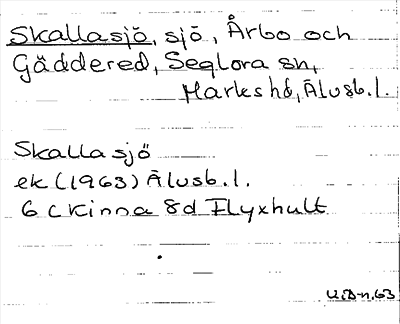 Skallasjö, sjö, Årbo och
Gäddered, Seglora sn,
Marks hd, Älvsb. l.
Skallasjö
ek (1963) Älvsb. l.
6 c Kinna 8d Flyxhult